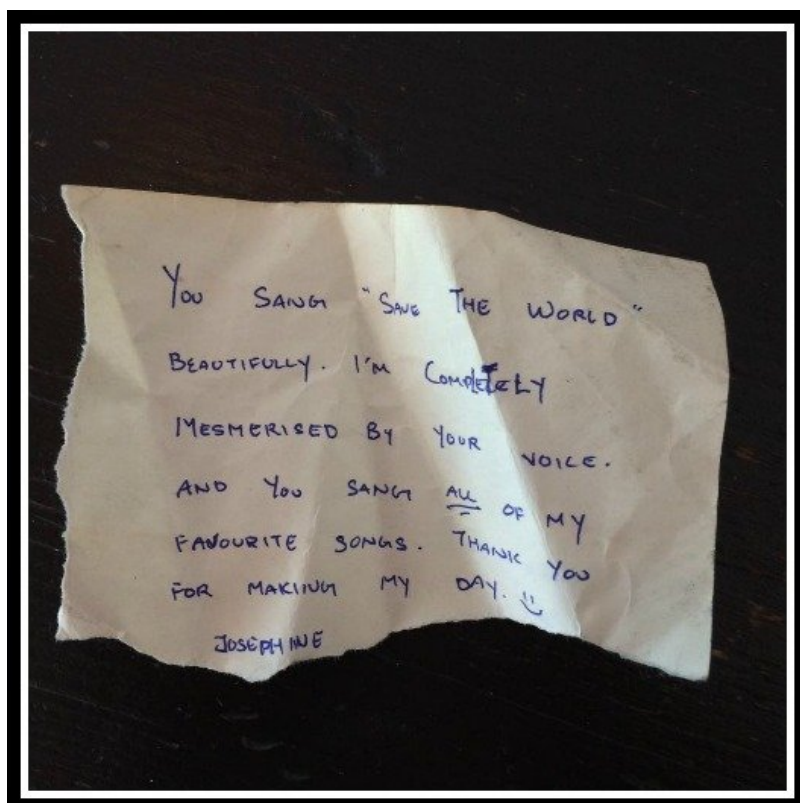 You SANG "SAVE THE WORLD"
BEAUTIFULLY. I'M COMPLETELY
MESMERISED BY YOUR VOICE.
AND YOU SANG ALL OF MY
FAVOURITE SONGS. THANK YOU
FOR MAKING MY DAY. :)
JOSEPHINE